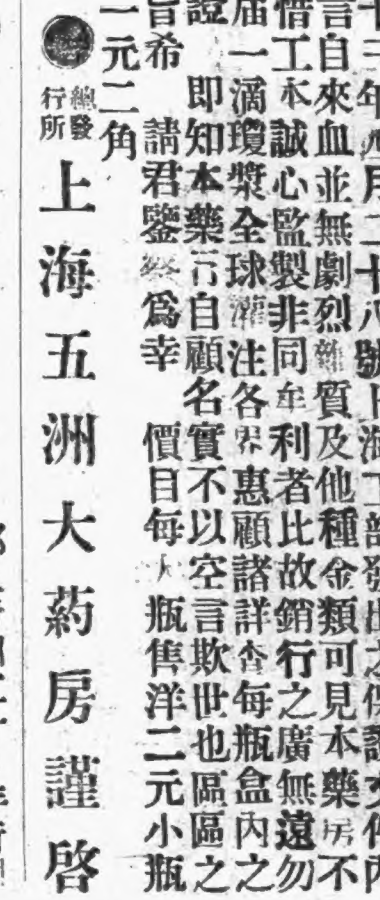 十三年九月二十八號上海工部發出之保證文件內
言自來血並無劇烈雜質及他種金類可見本藥房不
惜工本誠心監製非同牟利者比故銷行之廣無遠勿
屆一滴瓊漿全球灌注各界惠顧諸詳查每瓶盒內之
證 即知本藥行自顧名實不以空言欺世也區區之
旨希 請君鑒察爲幸 價目每大瓶售洋二元小瓶
一元二角
總發行所 上海五洲大葯房謹啓